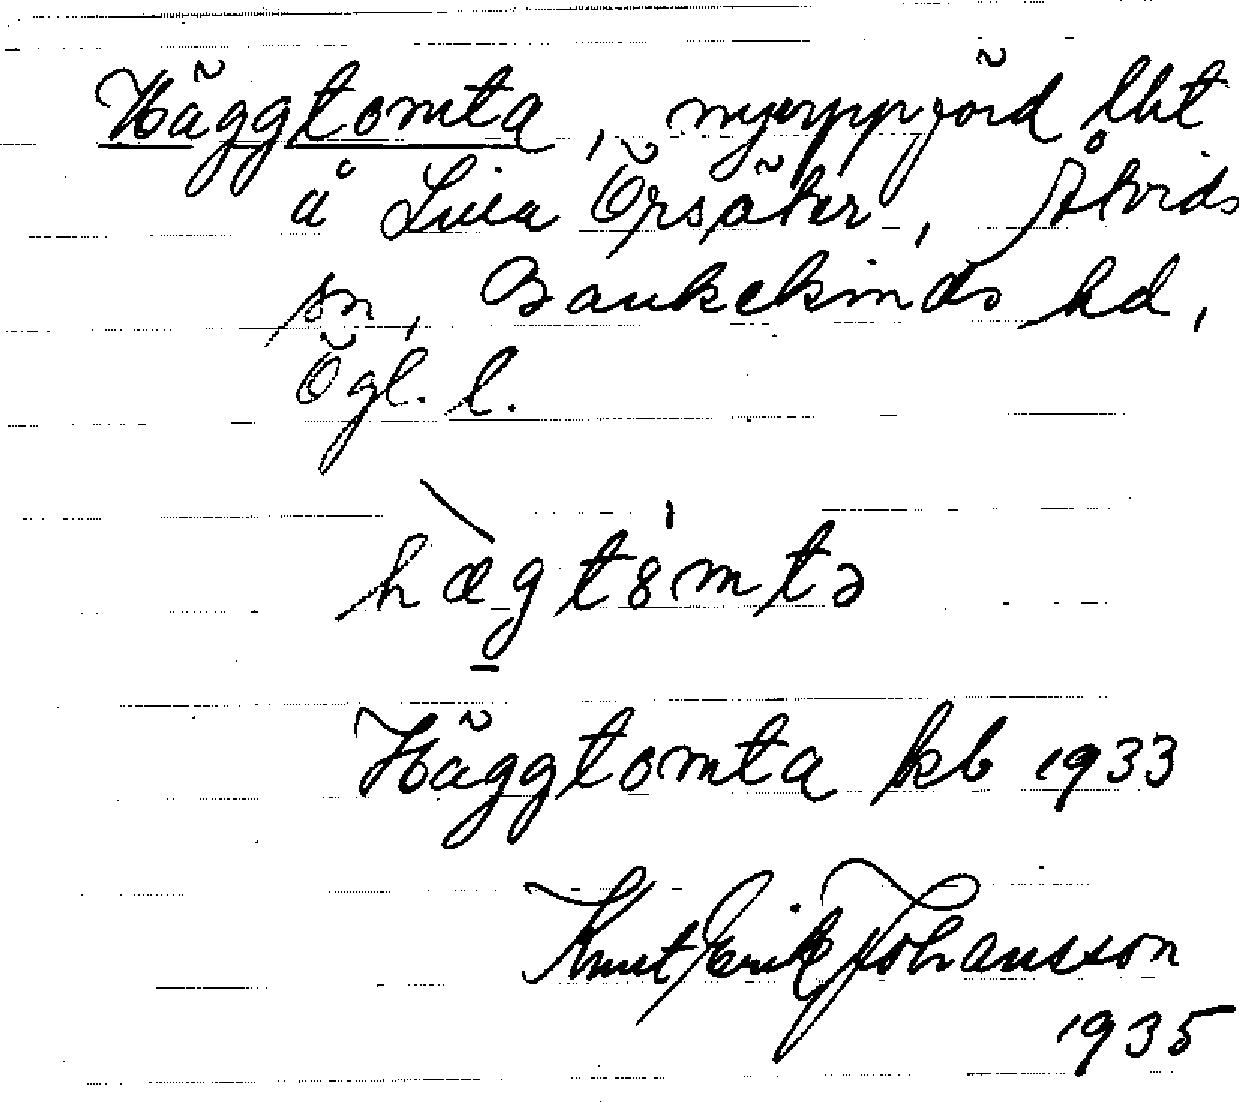 Häggtomta, nyuppförd lht
å Lilla Örsäter, Åtvids
sn, Bankekinds hd,
Ögl. l.
hægtomtə
Häggtomta kb 1933
Knut Erik Johansson
1935